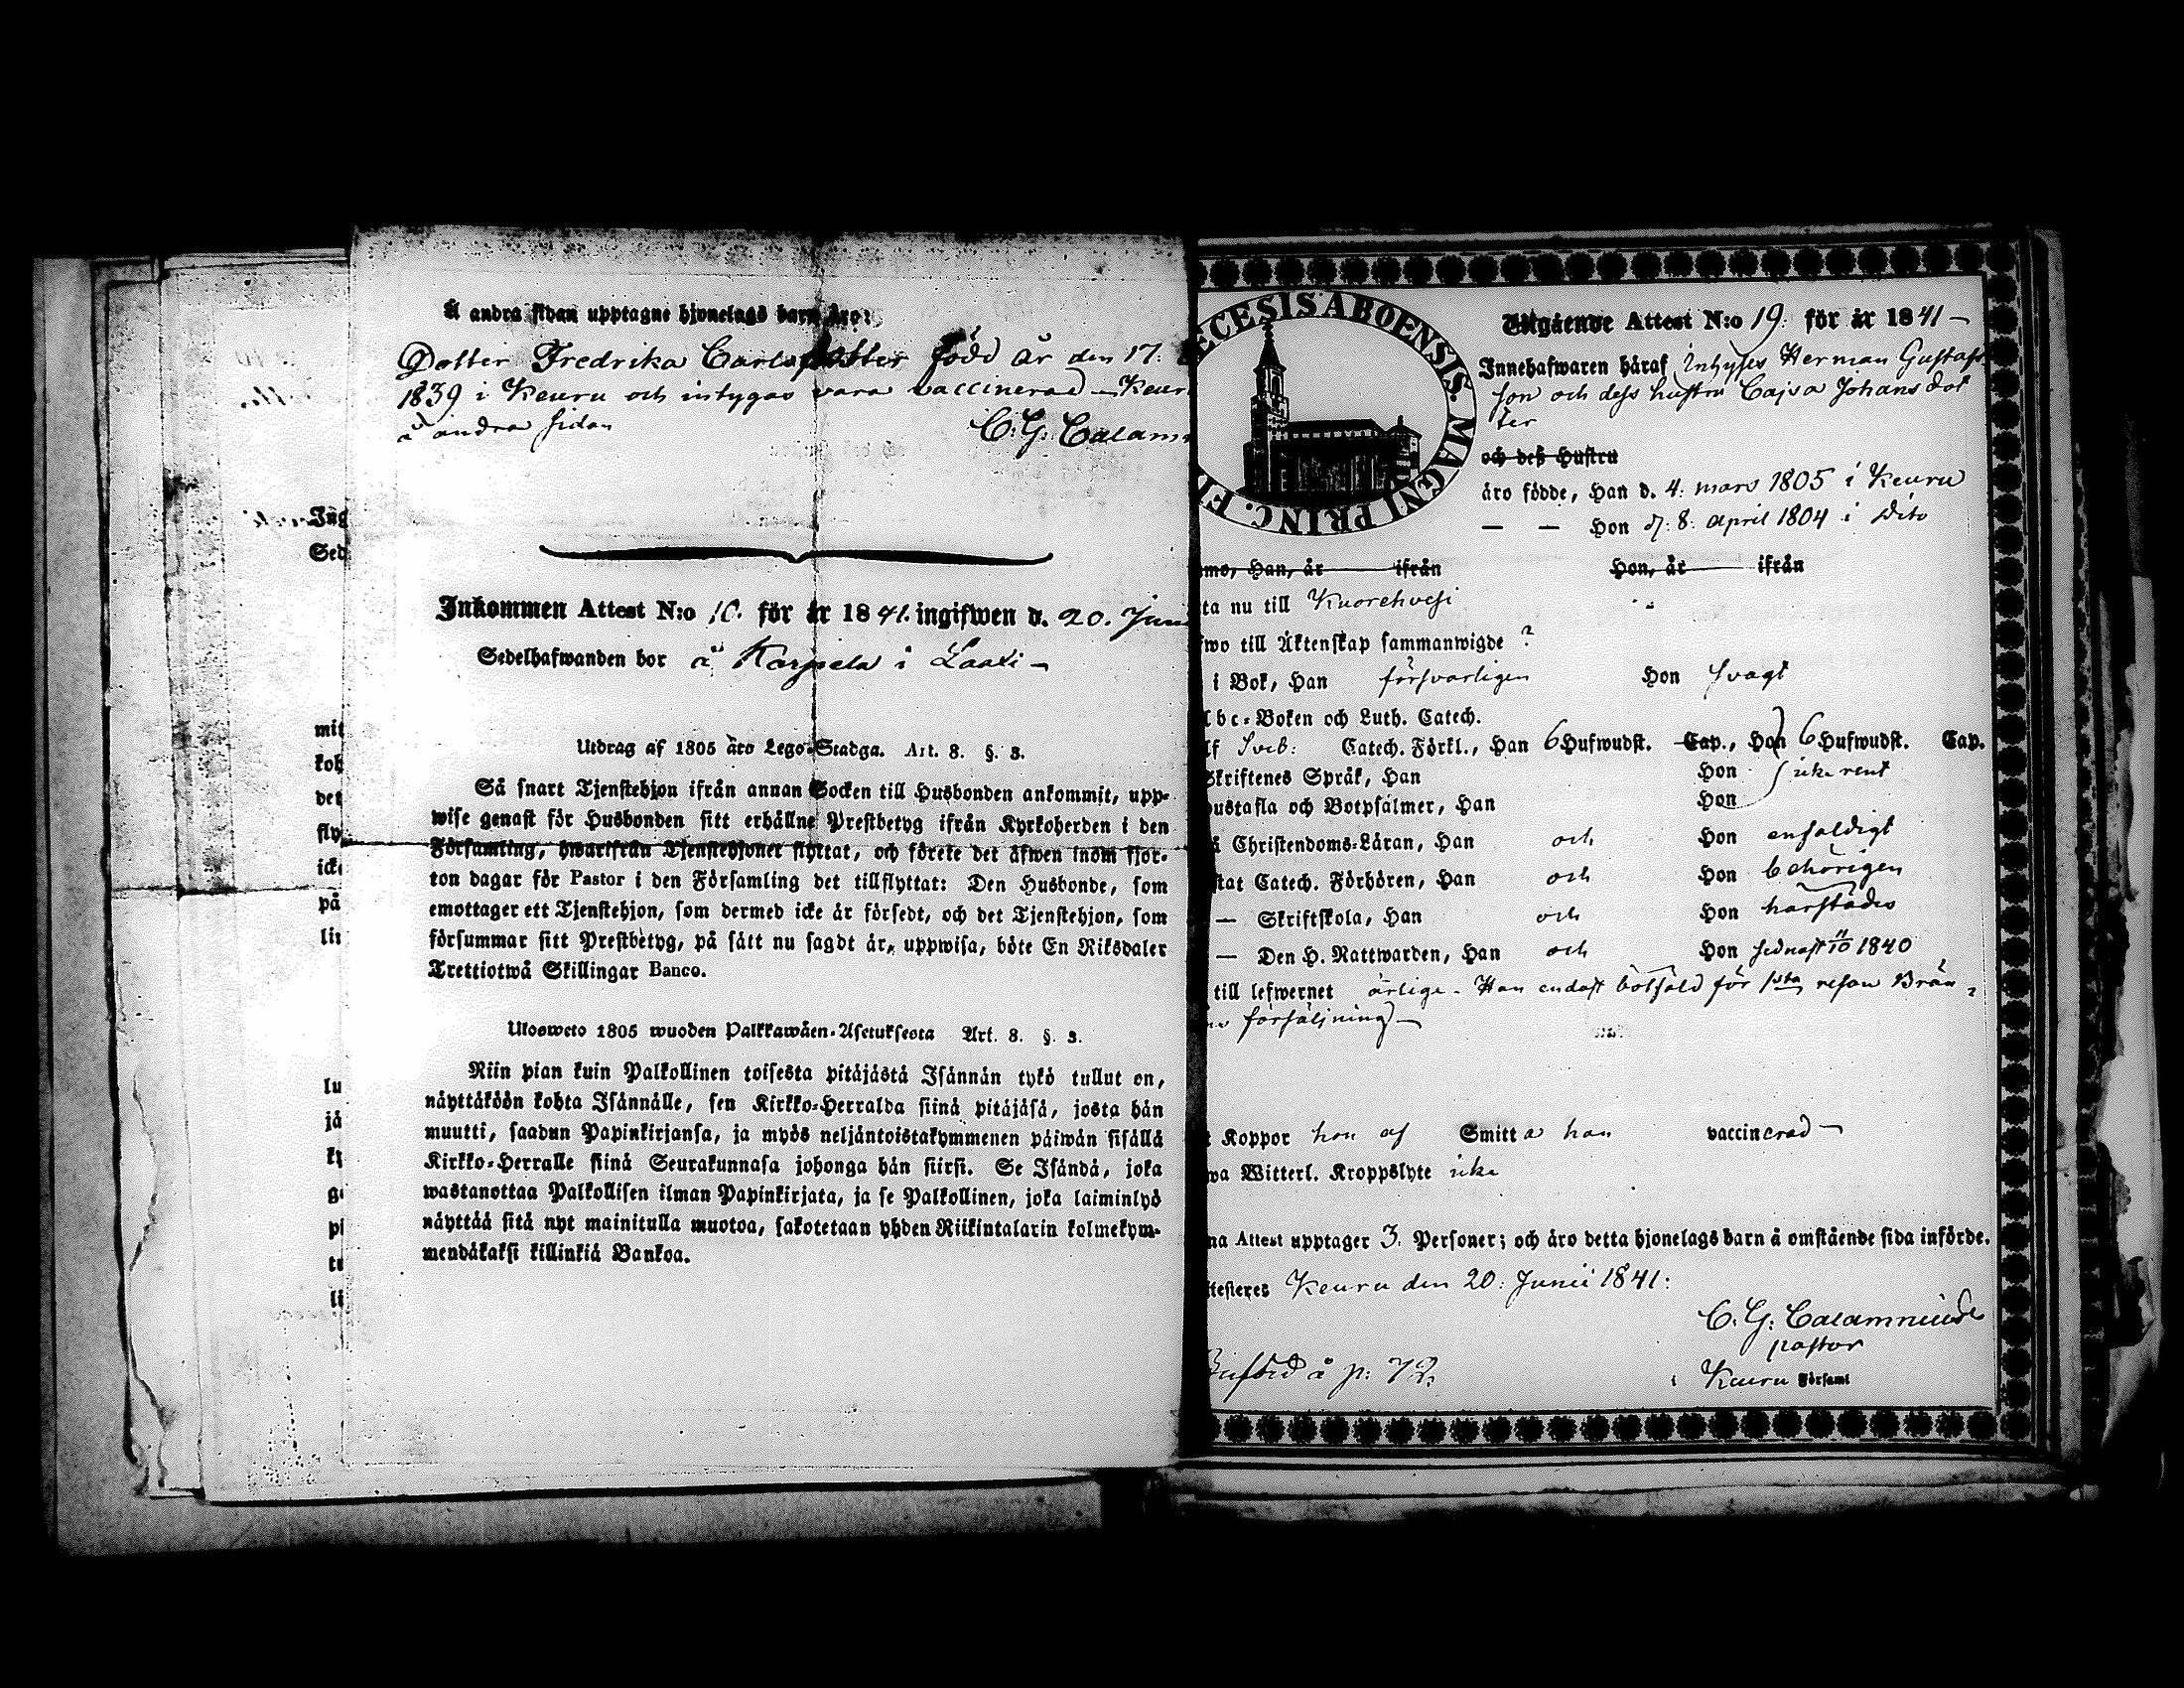 Å andra sidan upptagne hjonelags barn äro:
Dotter Fredrika Carlsdotter född år den 17:
1839 i Keuru och intygas vara vaccinerad Keur
å andra sidan
C. G. Calam
Inkommen Attest N:o 10. för år 1841. ingifwen d. 20. Jun
Sedelhafwanden bor å Karpela i Laaxi –
Utdrag af 1805 års Lego-Stadga. Art. 8. §. 3.
Så snart Tjenstehjon ifrån annan Socken till Husbonden ankommit, upp-
wise genast för Husbonden sitt erhållne Prestbetyg ifrån Kyrkoherden i den
Församling, hwarifrån Tjenstehjonet flyttat, och förete det äfwen inom fjor-
ton dagar för Pastor i den Församling det tillflyttat: Den Husbonde, som
emottager ett Tjenstehjon, som dermed icke är försedt, och det Tjenstehjon, som
försummar sitt Prestbetyg, på sätt nu sagdt är, uppwisa, böte En Riksdaler
Trettiotwå Skillingar Banco.
Ulosweto 1805 wuoden Palkkawäen-Asetuksesta Art. 8. §. 3.
Niin pian kuin Palkollinen toisesta pitäjästä Isännän tykö tullut on,
näyttäköön kohta Isännälle, sen Kirkko-Herralda siinä pitäjäsä, josta hän
muutti, saadun Papinkirjansa, ja myös neljäntoistakymmenen päiwän sisällä
Kirkko-Herralle siinä Seurakunnasa johonga hän siirsi. Se Isändä, joka
wastanottaa Palkollisen ilman Papinkirjata, ja se Palkollinen, joka laiminlyö
näyttää sitä nyt mainitulla muotoa, sakotetaan yhden Riikintalarin kolmekym-
mendäkaksi killinkiä Bankoa.
Ing
Sed
mit
koh
det
fly
icke
på
lin
lu
jä
ECESIS ABOENSIS. MAGNI PRINC. F
Utgående Attest N:o 19: för år 1841 –
Innehafwaren häraf Inhyses Herman Gustafs
son och dess hustru Cajsa Johans dot
ter
och deß Hustru
äro födde, Han d. 4: mars 1805 i Keuru
— — Hon d: 8: april 1804 i Dito
mo, Han, år ifrån Hon, år ifrån
ta nu till Kuorehvesi
wo till Äktenskap sammanwigde ?
i Bok, Han försvarligen Hon svagt
Abc-Boken och Luth. Catech.
lf Sveb: Catech. Förkl., Han 6 Hufwudst. Cap., Hon 6 Hufwudst. Cap.
Skriftenes Språk, Han Hon icke rent
Hustafla och Botpsalmer, Han Hon
å Christendoms-Läran, Han och Hon enfaldigt
stat Catech. Förhören, Han och Hon behörigen
— Skriftskola, Han och Hon härstädes
— Den H. Nattwarden, Han och Hon sednast 11/10 1840
till lefwernet ärlige – Han endast bötfäld för 1sta resan Brän-
försäljning –
Koppor hon af Smitta han vaccinerad –
wa Witterl. Kroppslyte icke
na Attest upptager 3. Personer; och äro detta hjonelags barn å omstående sida införde.
ttesteres Keuru den 20: Junii 1841:
C. G. Calamnius
pastor
i Keuru Församl
Införd å p: 72.